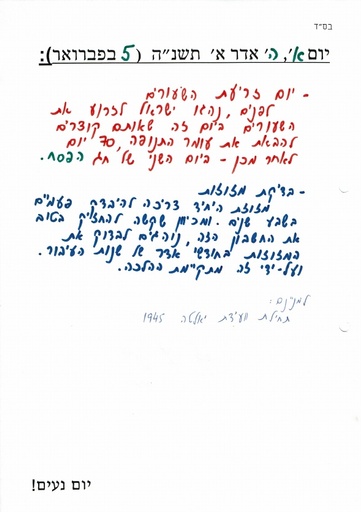 בס״ד
יום א׳, ה׳ אדר א׳ תשנ״ה (5 בפברואר):
- יום זריעת השעורים
לפנים, נהגו ישראל לזרוע את
השעורים ביום זה שאותם קוצרים
להבאת את עומר התנופה, 70 יום
לאחר מכן - היום השני של חג הפסח.
- בדיקת מזוזות
מזוזת היחיד צריכה להיבדק פעמיים
בשבע שנים. ומכיוון שקשה להחזיק בטוב
את החשבון הזה, נוהגים לבדוק את
המזוזות בחודשי אדר א׳ שנות העיבור.
ועל-ידי זה מתקיימת ההלכה.
למנינם:
תחילת ועידת יאלטה 1945
יום נעים!